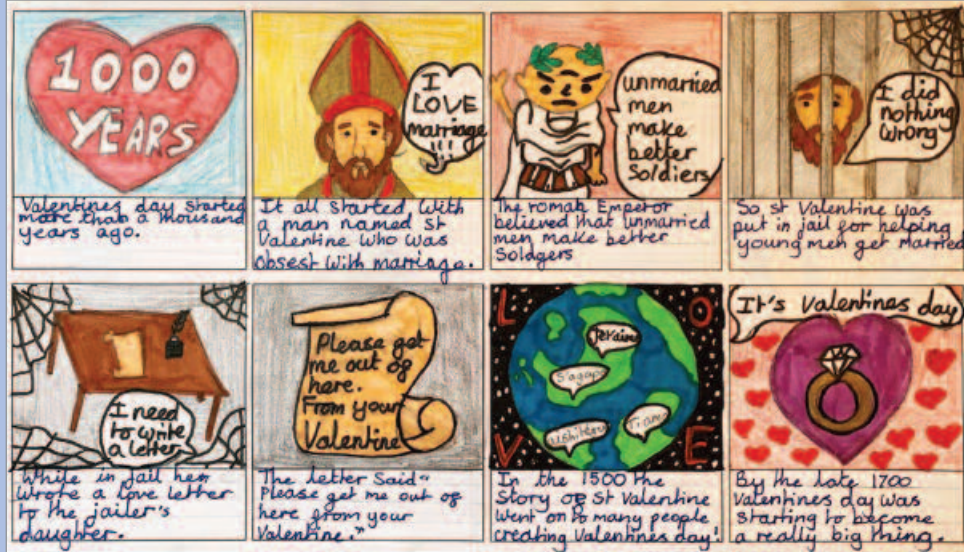 1000
YEARS
Valentines day started
more than a thousand
years ago.
I
LOVE
marriage
!!!
It all started with
a man named st
Valentine who was
obsest with marriage.
unmarried
men
make
better
Soldiers
The roman Emperor
believed that unmarried
men make better
Soldgers
I did
nothing
wrong
So st Valentine was
put in jail for helping
young men get married
I need
to write
a letter
While in jail he
wrote a love letter
to the jailer's
daughter.
Please get
me out of
here.
From your
Valentine
The letter said "
Please get me out of
here from your
Valentine."
L O
V E
Je t'aime
S'agapo
Ti amo
In the 1500 the
Story of St Valentine
went on to many people
creating Valentines day!
It's Valentines day
By the late 1700
Valentines day was
starting to become
a really big thing.